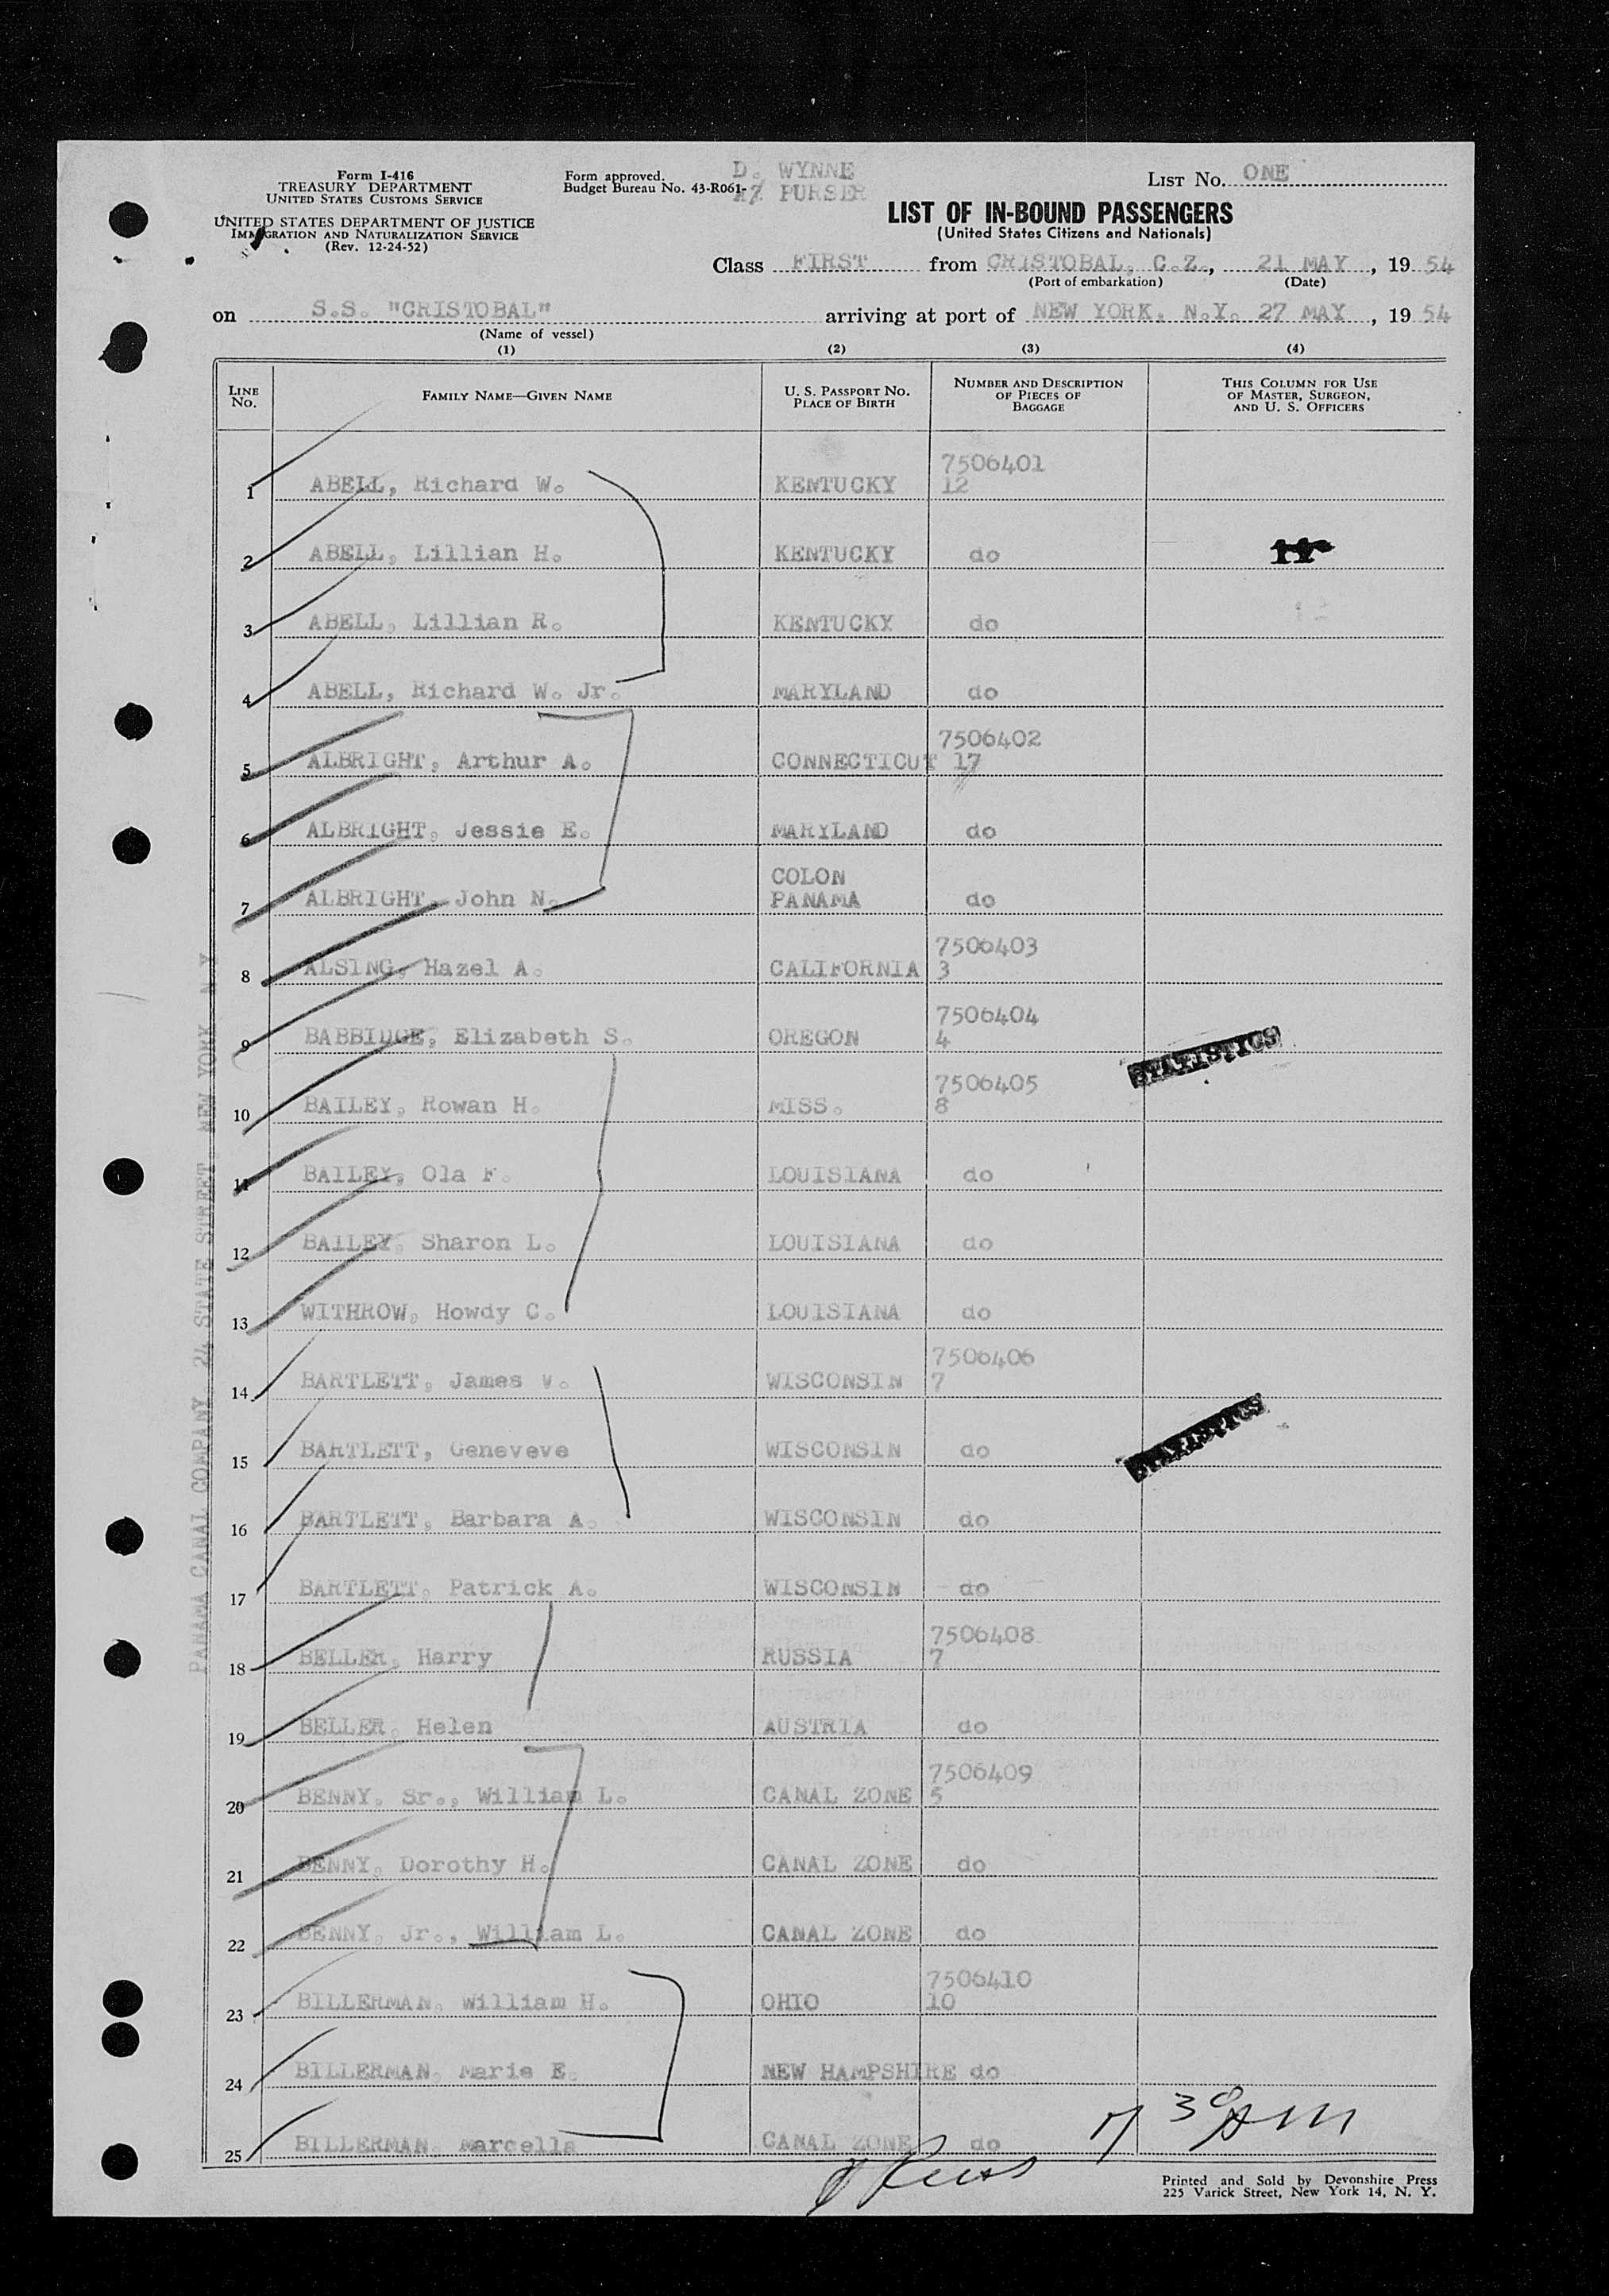 Form I-416
TREASURY DEPARTMENT
UNITED STATES CUSTOMS SERVICE
UNITED STATES DEPARTMENT OF JUSTICE
IMMIGRATION AND NATURALIZATION SERVICE
(Rev. 12-24-52)
Form approved.
Budget Bureau No. 43-R061-
D. WYNNE
PURSER
LIST NO. ONE
LIST OF IN-BOUND PASSENGERS
(United States Citizens and Nationals)
Class FIRST from CRISTOBAL, C.Z., 21 MAY, 1954
(Port of embarkation) (Date)
on S.S. "CRISTOBAL" arriving at port of NEW YORK, N.Y. 27 MAY, 1954
(Name of vessel)
(1) (2) (3) (4)
LINE NO. FAMILY NAME—GIVEN NAME U. S. PASSPORT NO. PLACE OF BIRTH NUMBER AND DESCRIPTION OF PIECES OF BAGGAGE THIS COLUMN FOR USE OF MASTER, SURGEON, AND U. S. OFFICERS
7506401
1 ABELL, Richard W. KENTUCKY 12
2 ABELL, Lillian H. KENTUCKY do
3 ABELL, Lillian R. KENTUCKY do
4 ABELL, Richard W. Jr. MARYLAND do
7506402
5 ALBRIGHT, Arthur A. CONNECTICUT 17
6 ALBRIGHT, Jessie E. MARYLAND do
COLON
7 ALBRIGHT, John N. PANAMA do
7506403
8 ALSING, Hazel A. CALIFORNIA 3
7506404
9 BABBIDGE, Elizabeth S. OREGON 4
STATISTICS
7506405
10 BAILEY, Rowan H. MISS. 8
11 BAILEY, Ola F. LOUISIANA do
12 BAILEY, Sharon L. LOUISIANA do
13 WITHROW, Howdy C. LOUISIANA do
7506406
14 BARTLETT, James V. WISCONSIN 7
15 BARTLETT, Geneveve WISCONSIN do
STATISTICS
16 BARTLETT, Barbara A. WISCONSIN do
17 BARTLETT, Patrick A. WISCONSIN do
7506408
18 BELLER, Harry RUSSIA 7
19 BELLER, Helen AUSTRIA do
7506409
20 BENNY, Sr., William L. CANAL ZONE 5
21 BENNY, Dorothy H. CANAL ZONE do
22 BENNY, Jr., William L. CANAL ZONE do
7506410
23 BILLERMAN, William H. OHIO 10
24 BILLERMAN, Marie E. NEW HAMPSHIRE do
25 BILLERMAN, Marcella CANAL ZONE do
7 30 AM
Printed and Sold by Devonshire Press
225 Varick Street, New York 14, N. Y.
PANAMA CANAL COMPANY 24 STATE STREET NEW YORK N Y